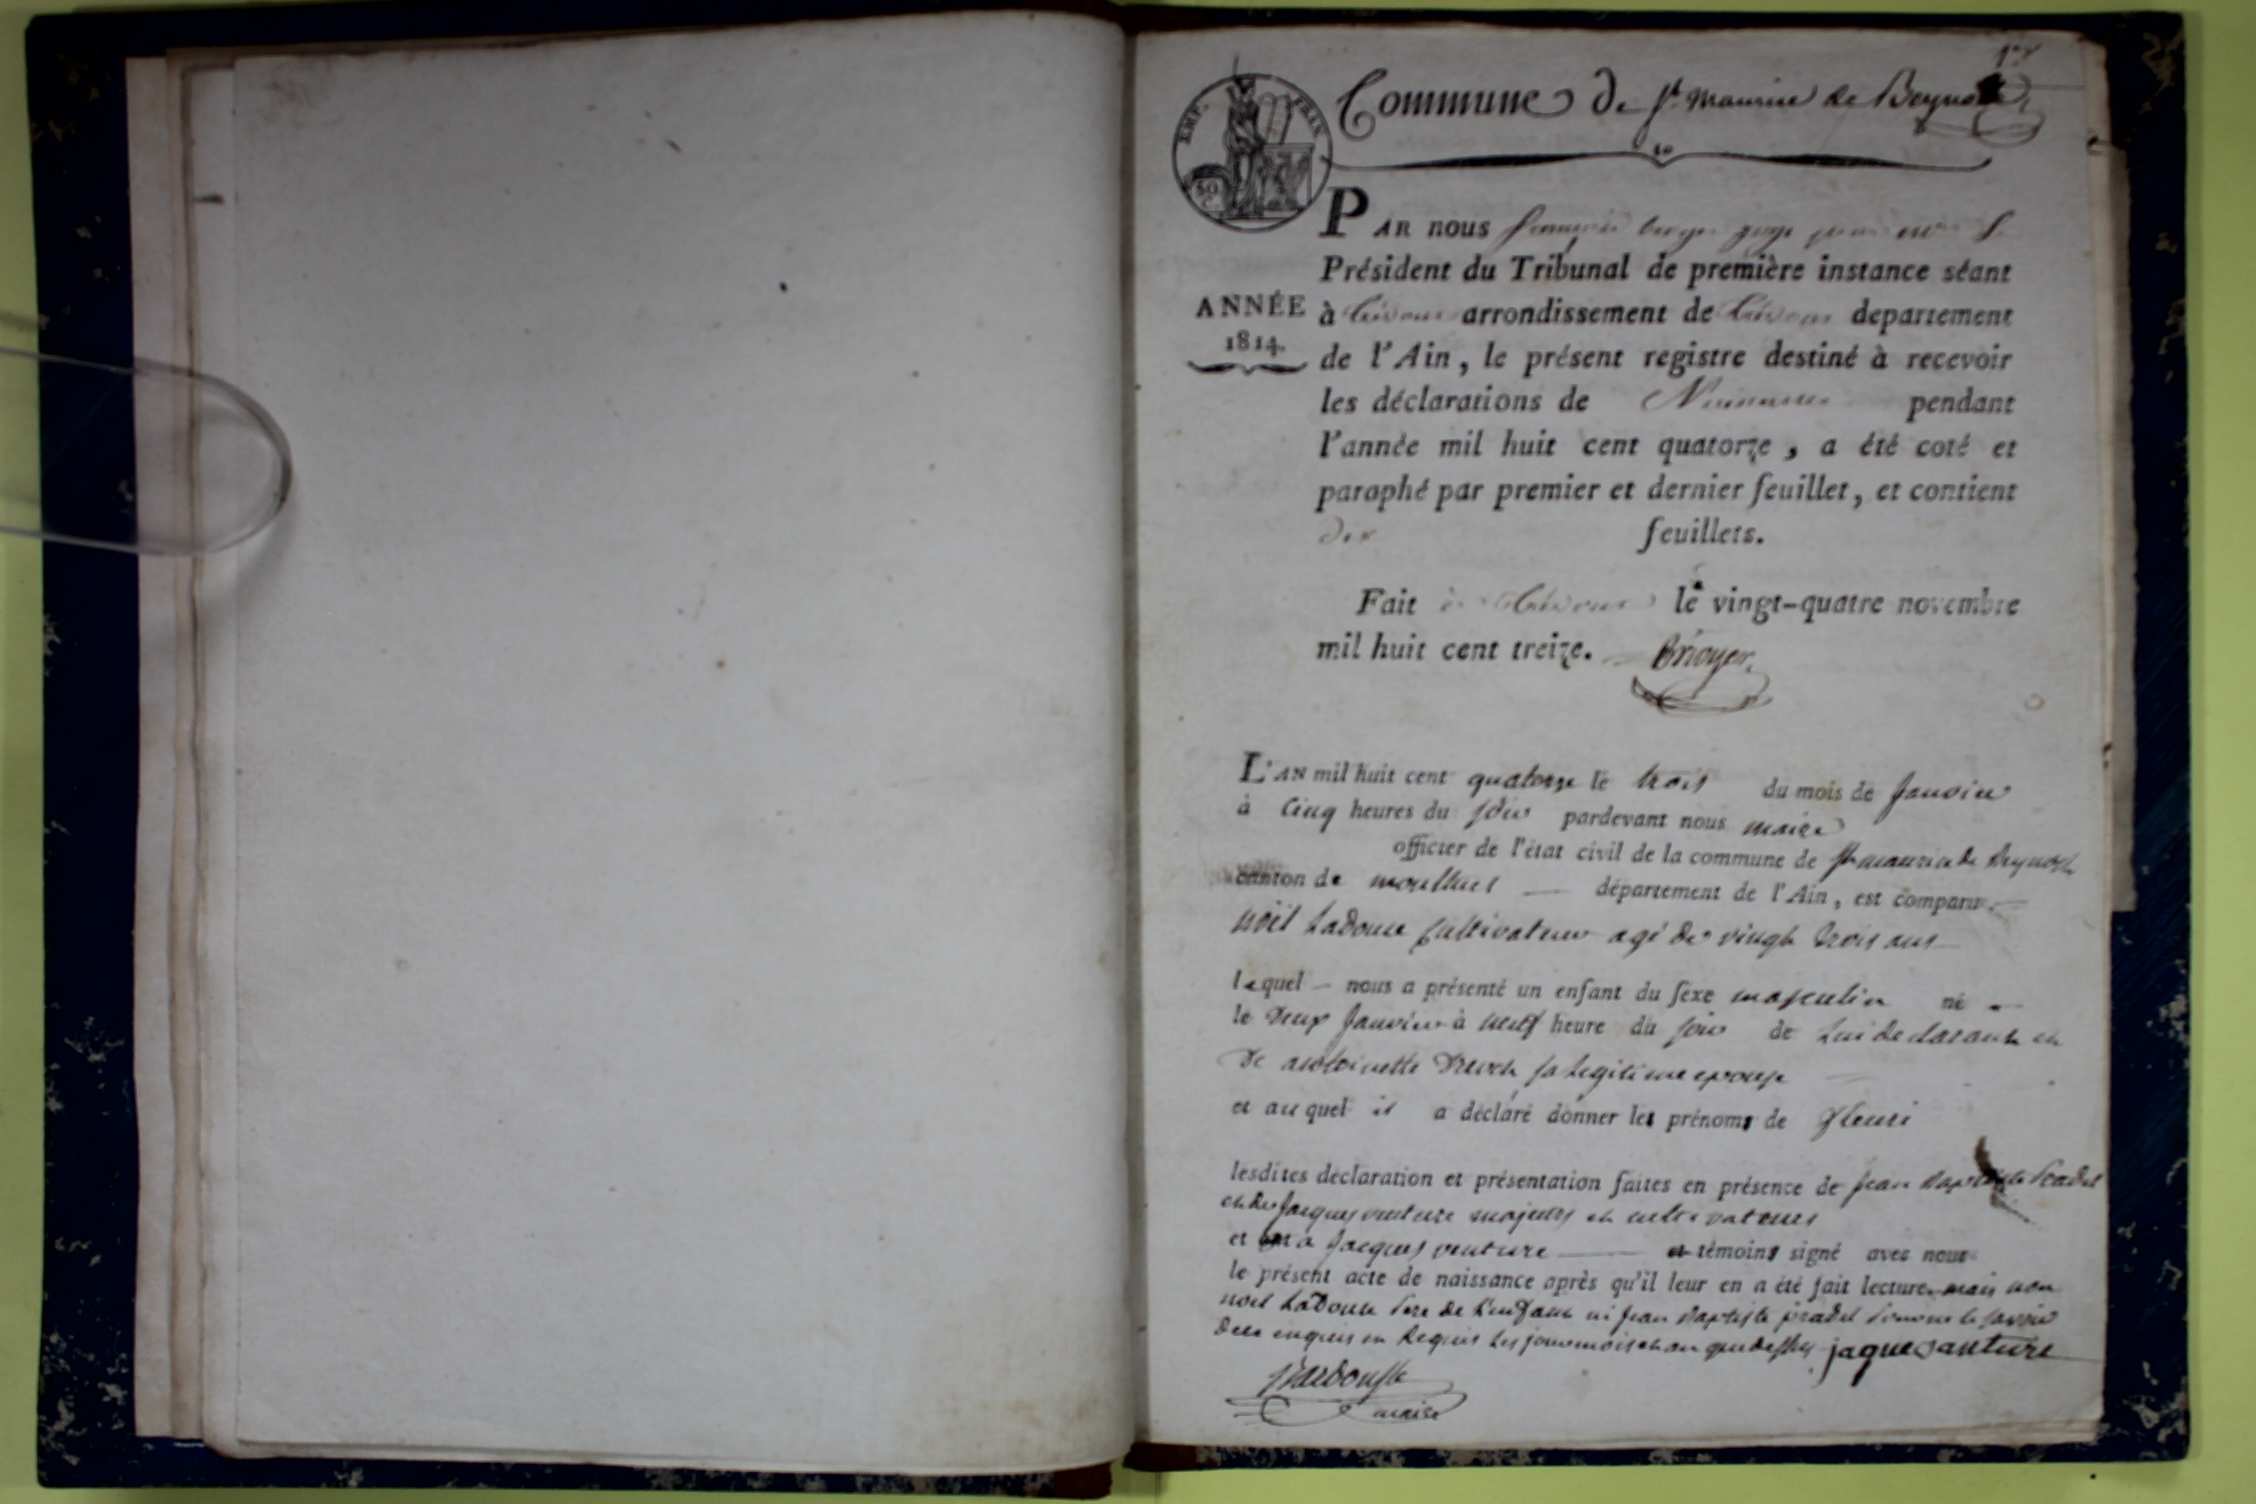 1er
Commune de St. Maurice de Beynost
EMP. FRAN.
50 C.
PAR nous
Président du Tribunal de première instance séant
ANNÉE
1814.
à Trévoux arrondissement de Trévoux departement
de l'Ain, le présent registre destiné à recevoir
les déclarations de Naissances pendant
l'année mil huit cent quatorze, a été coté et
paraphé par premier et dernier feuillet, et contient
dix feuillets.
Fait à Trévoux le vingt-quatre novembre
mil huit cent treize.
L'AN mil huit cent quatorze le trois du mois de janvier
à cinq heures du soir pardevant nous maire
officier de l'état civil de la commune de St maurice de Beynost
canton de montluel département de l'Ain, est comparu
noël Ladouce cultivateur agé de vingt trois ans
lequel nous a présenté un enfant du sexe masculin né
le deux janvier à neuf heure du soir de lui declarant et
de antoinette sa legitime epouse
et auquel il a déclaré donner les prénoms de fleuri
lesdites déclaration et présentation faites en présence de jean Baptiste Pradel
et de jacques venture majeurs et cultivateurs
et a jacques venture témoins signé avec nous
le présent acte de naissance après qu'il leur en a été fait lecture mais non
noel Ladouce pere de l'enfant ni jean Baptiste pradel pour ne le savoir
de ce enquis et requis les jour mois et an que dessus jaque vanture
maire